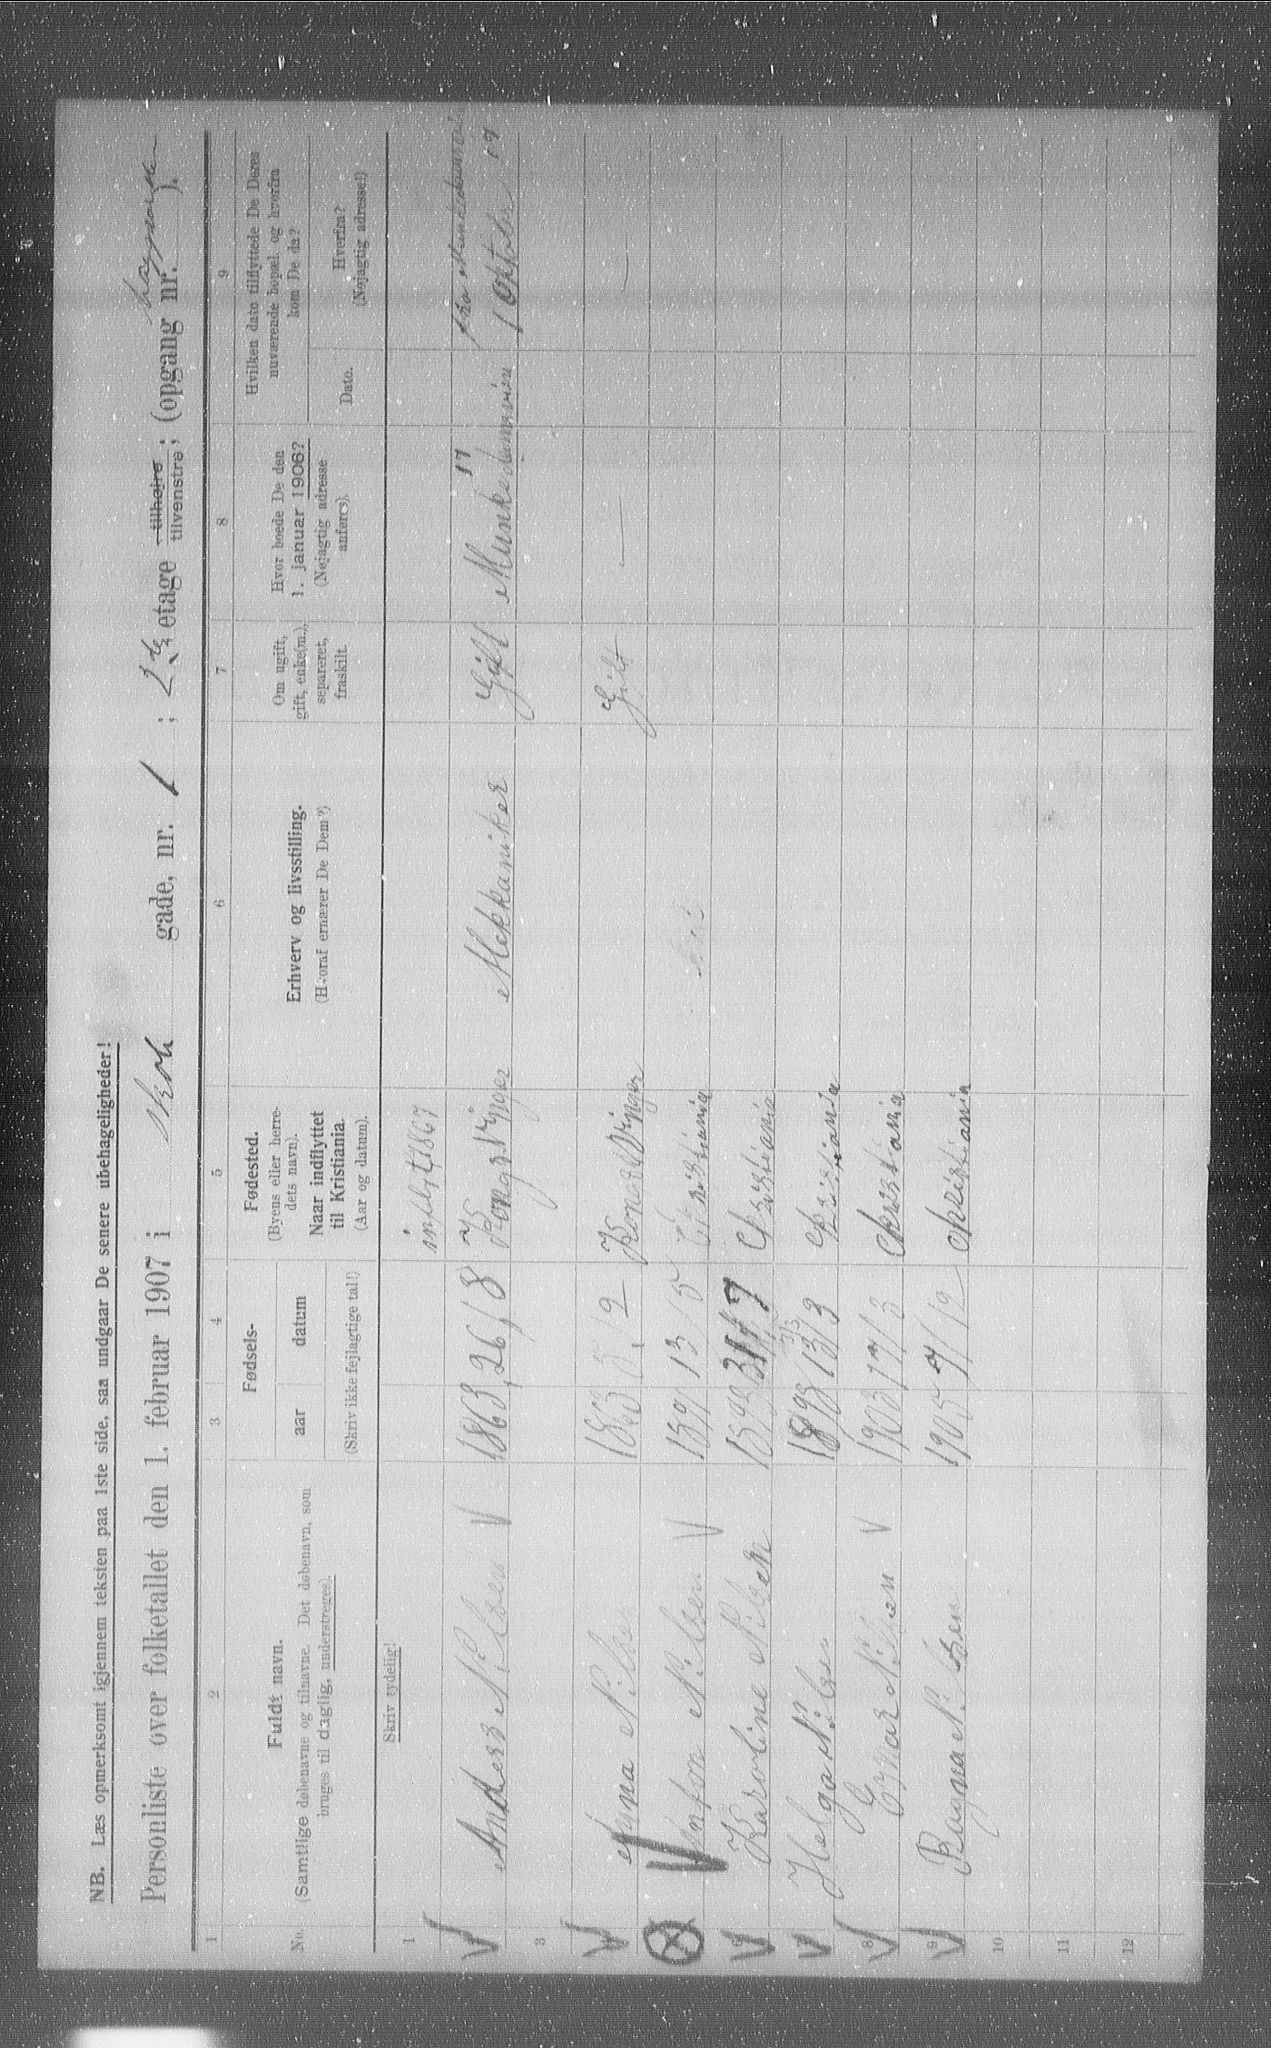 NB. Læs opmerksomt igjennem teksten paa 1ste side, saa undgaar De senere ubehageligheder!
Personliste over folketallet den 1. februar 1907 i gade, nr. 1 ; 2 etage tilhøire tilvenstre; (opgang nr. ).
1 2 3 4 5 6 7 8 9
No.
Fuldt navn.
(Samtlige døbenavne og tilnavne. Det døbenavn, som
bruges til daglig, understreges).
Fødsels-
aar datum
(Skriv ikke fejlagtige tal!)
Fødested.
(Byens eller herre-
dets navn).
Naar indflyttet
til Kristiania.
(Aar og datum).
Erhverv og livsstilling.
(Hvoraf ernærer De Dem?)
Om ugift,
gift, enke(m.),
separeret,
fraskilt.
Hvor boede De den
1. januar 1906?
(Nøjagtig adresse
anføres).
Hvilken dato tilflyttede De Deres
nuværende bopæl, og hvorfra
kom De da?
Dato.
Hvorfra?
(Nøjagtig adresse!)
Skriv tydelig!
1 1867
Anders Nilsen V 1863 26/8 Kongsvinger Mekkaniker Gift Munkedamsveien 17 1 Oktober 17
3
Anna Nilsen 1865 /2 Kongsvinger Gift — —
Nilsen V 1891 13/5 Kristiania
Karoline Nilsen 1893 31/7 Kristiania
Helga Nilsen 1898 13/3 Kristiania
8 Einar Nilsen V 1903 17/3 Kristiania
9 Ragna Nilsen 1905 7/12 Kristiania
10
11
12